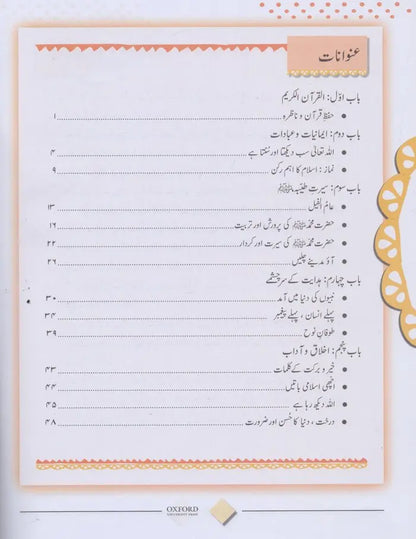 عنوانات
باب اوّل: القرآن الکریم
• حفظِ قرآن و ناظرہ ۱
باب دوم: ایمانیات و عبادات
• اللہ تعالیٰ سب دیکھتا اور سنتا ہے ۴
• نماز: اسلام کا اہم رکن ۹
باب سوم: سیرتِ طیّبہ ﷺ
• عام الفیل ۱۳
• حضرت محمد ﷺ کی پرورش اور تربیت ۱۶
• حضرت محمد ﷺ کی سیرت اور کردار ۲۲
• آؤ مدینے چلیں ۲۶
باب چہارم: ہدایت کے سرچشمے
• نبیوں کی دنیا میں آمد ۳۰
• پہلے انسان، پہلے پیغمبر ۳۴
• طوفانِ نوح ۳۹
باب پنجم: اخلاق و آداب
• خیر و برکت کے کلمات ۴۳
• اچھی اسلامی باتیں ۴۴
• اللہ دیکھ رہا ہے ۴۵
• درخت، دنیا کا حُسن اور ضرورت ۴۸
OXFORD
UNIVERSITY PRESS